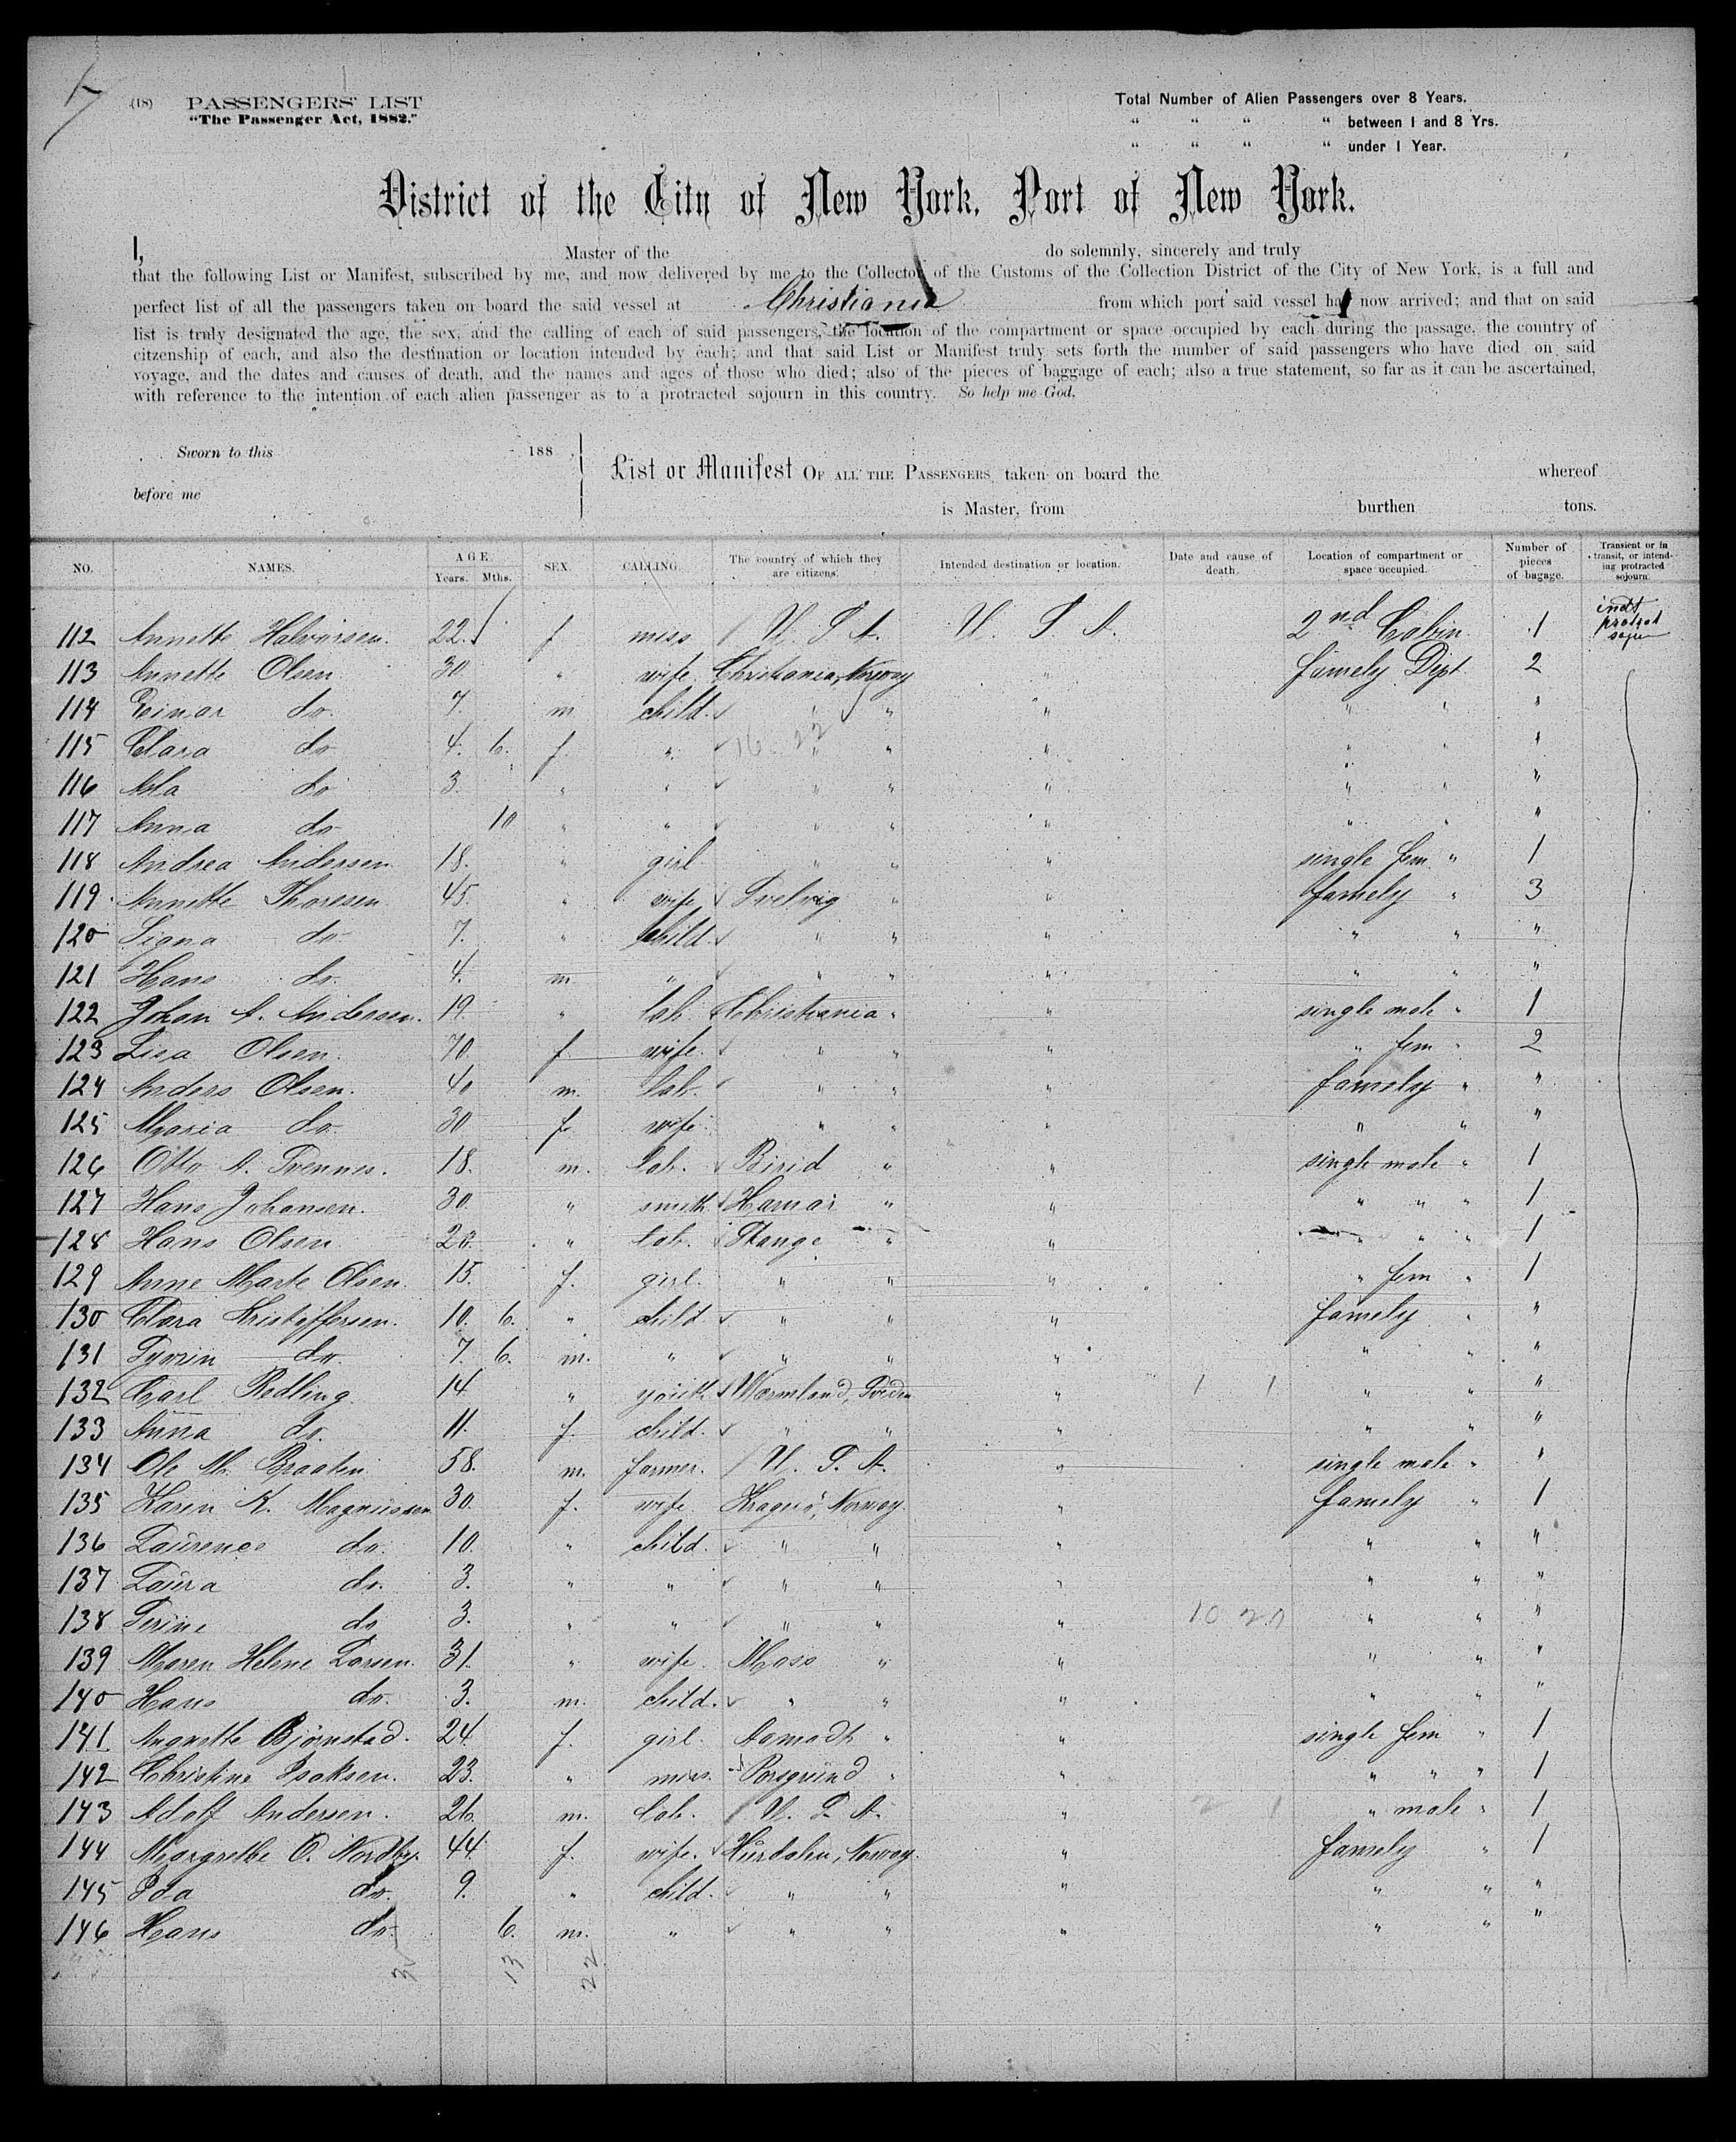 (18) PASSENGERS' LIST
"The Passenger Act, 1882."
Total Number of Alien Passengers over 8 Years.
“ “ “ “ between 1 and 8 Yrs.
“ “ “ “ under 1 Year.
District of the City of New York, Port of New York.
I, Master of the do solemnly, sincerely and truly
that the following List or Manifest, subscribed by me, and now delivered by me to the Collector of the Customs of the Collection District of the City of New York, is a full and
perfect list of all the passengers taken on board the said vessel at Christiania from which port said vessel has now arrived; and that on said
list is truly designated the age, the sex, and the calling of each of said passengers, the location of the compartment or space occupied by each during the passage, the country of
citzenship of each, and also the destination or location intended by each; and that said List or Manifest truly sets forth the number of said passengers who have died on said
voyage, and the dates and causes of death, and the names and ages of those who died; also of the pieces of baggage of each; also a true statement, so far as it can be ascertained,
with reference to the intention of each alien passenger as to a protracted sojourn in this country. So help me God.
Sworn to this 188
before me
List or Manifest OF ALL THE PASSENGERS taken on board the whereof
is Master, from burthen tons.
NO. NAMES. AGE. Years. Mths. SEX. CALLING. The country of which they are citizens. Intended destination or location. Date and cause of death. Location of compartment or space occupied. Number of pieces of bagage. Transient or in transit, or intending protracted sojourn.
112 Annette Halvorsen. 22. f miss U. S. A. U. S. A. 2nd Cabin 1
113 Annette Olsen 30 " wife Christiania, Norway " famely Dept 2
114 Einar do. 7. m child. " " " " " "
115 Clara do 4. 6. f. " " " " " " "
116 do 3. " " " " " " " "
117 Anna do 10 " " " " " " " "
118 Andrea Andersen 18. " girl " " " single fem " 1
119 Annette Thoresen 45. " wife Svelvig " " famely " 3
120 Signa do 7. " child. " " " " " "
121 Hans do. 4. m " " " " " " "
122 Johan A. Andersen. 19. " lab. Christiania " " single male " 1
123 Lisa Olsen. 70 f wife. " " " " fem " 2
124 Anders Olsen. 40 m. lab. " " " famely " "
125 Maria do. 30 f. wife. " " " " " "
126 Otto A. 18. m. lab. Birid " " single male " 1
127 Hans Johansen. 30. " smith Hamar " " " " " 1
128 Hans Olsen 20. " lab. Stange " " " " " 1
129 Anne Marte Olsen. 15. f. girl. " " " " fem " 1
130 Clara Kristoffersen. 10. 6. " child " " " famely " "
131 do. 7. 6. m. " " " " " " "
132 Carl Redling 14 " youth Wærmland, Sveden " " " "
133 Anna do. 11. f. child. " " " " " "
134 Ole M. Braaten. 58. m. farmer. U. S. A. " single male " "
135 Karen K. Magnussen 30. f. wife Kragerö, Norway " famely " 1
136 Laurence do. 10. " child. " " " " " "
137 Laura do. 3. " " " " " " " "
138 do 3. " " " " " 10 20 " " "
139 Maren Helene Larsen. 31. " wife. Moss " " " " "
140 Hans do. 3. m. child. " " " " " "
141 Bjørnstad. 24. f. girl. " " single fem " 1
142 Christine Isaksen. 23. " miss. Porsgrund " " " " " 1
143 Adolf Andersen. 26. m. lab. U. S. A. " 2 1 " male " 1
144 Margrethe O. Nordby. 44. f. wife. Hurdalen, Norway. " famely " 1
145 Ida do. 9. " child. " " " " " "
146 Hans do. 6. m. " " " " " " "
13 22